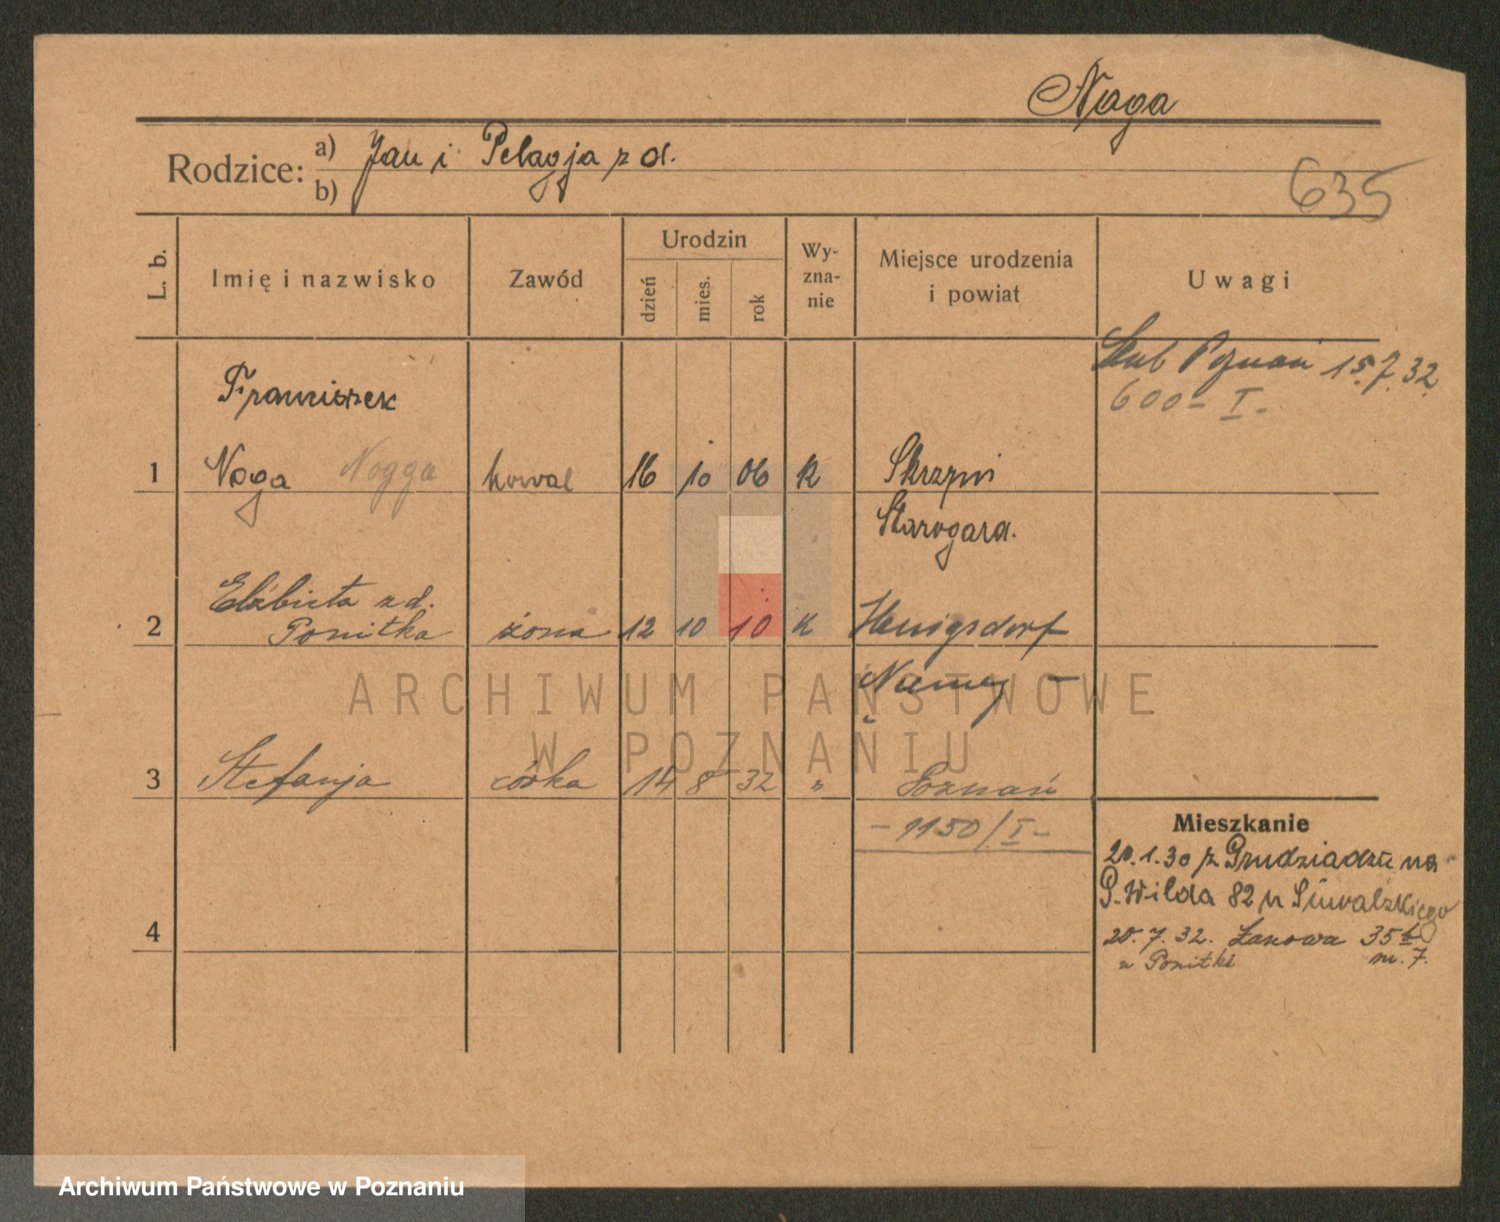 Noga
Rodzice: a) Jan i Pelagja z d.
b)
635
L. b.
Imię i nazwisko
Zawód
Urodzin
dzień
mies.
rok
Wy-
zna-
nie
Miejsce urodzenia
i powiat
Uwagi
Ślub Poznań 15.7.32
600 - I -
Franciszek
1 Noga Nogga kowal 16 10 06 K
Starogard.
Elżbieta z d.
2 Ponitka żona 12 10 10 K Henigsdorf
3 Stefanja córka 14 8 32 " Poznań
- 1150/I -
Mieszkanie
20.1.30 z Grudziądza na
G. Wilda 82 u
20.7.32. Łanowa 35b
u Ponitki m. 7.
4
ARCHIWUM PAŃSTWOWE
W POZNANIU
Archiwum Państwowe w Poznaniu